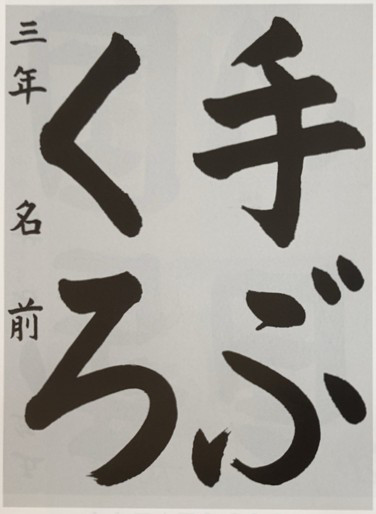 手ぶ
くろ
三年 名前